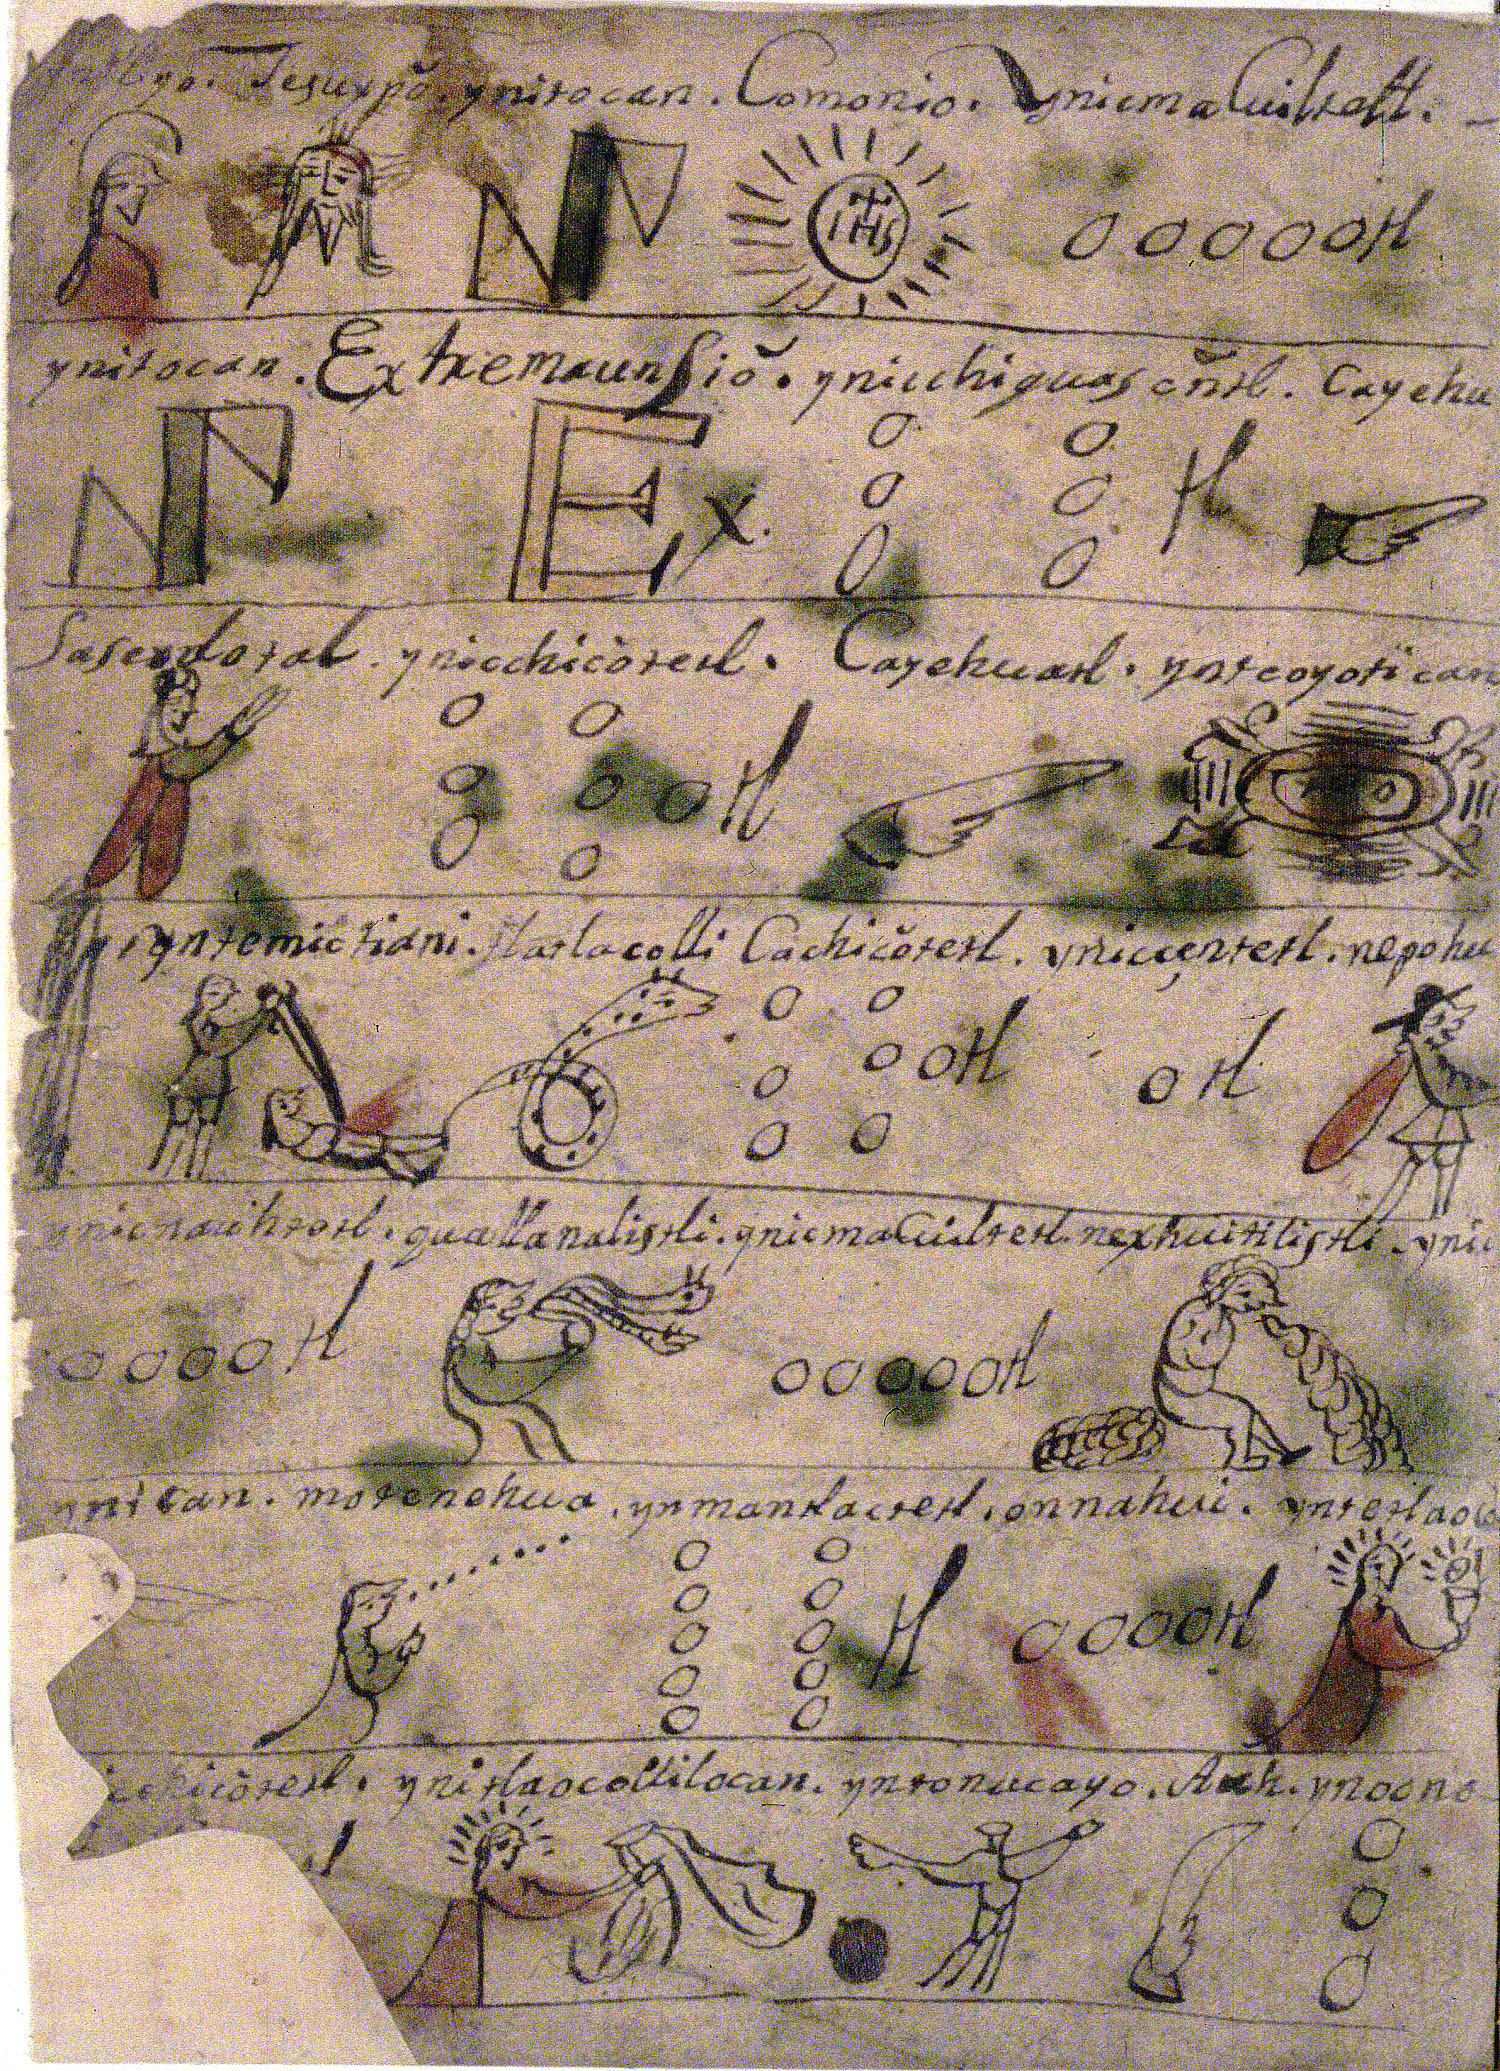 yo. Jesuxpō. ynitocan. Comonio. ynicmaCuiltetl.
IHS
OOOOOtl
ynitocan. ExtremaunSiō. ynicchiquasēntl. Cayehu
N Ex. OOOOOO tl
Saserdotal. ynicchicōtetl. Cayehuatl. ynteoyotican
OOOOOOO tl
yntemictiani. tlatlacolli Cachicōtetl. yniccentetl. nepohu
OOOOOOOtl Otl
ynicnauhtetl. quallanalistli. ynicmaCuiltetl. nexhuitilistli. ynic
OOOOtl OOOOOtl
ynican. motenehua. ynmantlactetl. onnahui. yntetlaoco
OOOOOOOOOO tl OOOOtl
icchicōtetl. ynitlaocollilocan. yntonacayo. Auh. ynocne
OOO